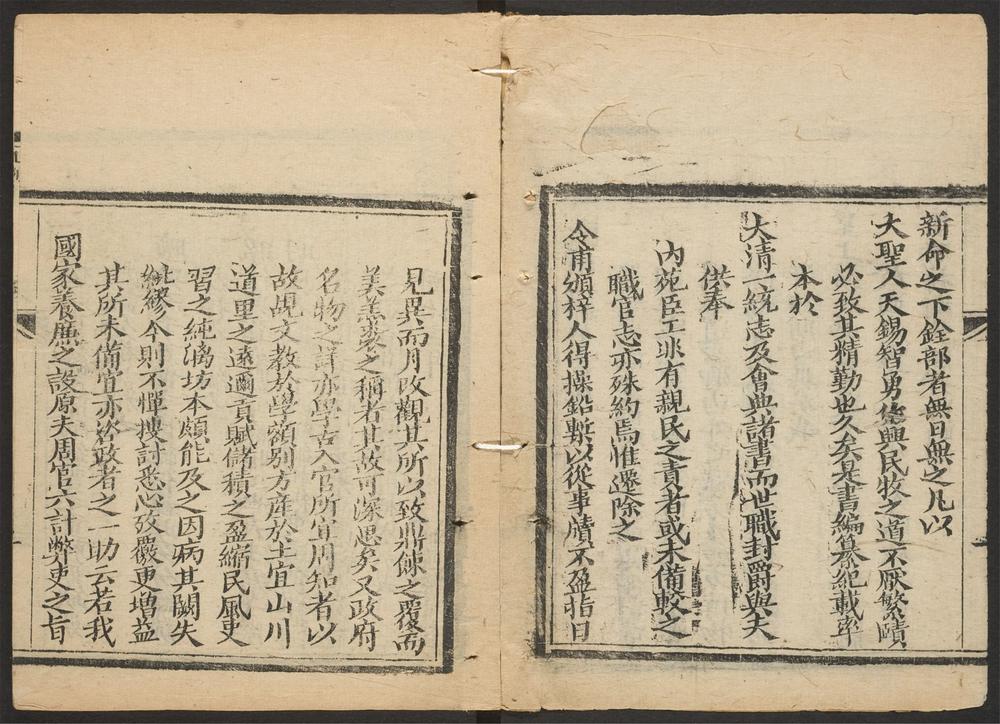 新命之下銓部者無日無之凡以
大聖人天錫智勇集與民牧之道不厭繁賾
必致其精勤也久矣是書編纂紀載率
本於
大清一統志及會典諸書而世職封爵與夫
供奉
內苑臣工非有親民之責者或未備較之
職官志亦殊約焉惟遷除之
令甫頒梓人得操鉛槧以從事牘不盈指日
見異而月改觀其所以致鼎餗之覆而
美羔裘之稱者其故可深思矣又政府
名物之詳亦學古入官所宜周知者以
故覘文教於學額别方産於土宜山川
道里之遠邇貢賦儲積之盈縮民風吏
習之純漓坊本頗能及之因病其闕失
紕繆今則不憚搜討悉心攷覈更増益
其所未備宣亦咨政者之一助云若我
國家養廉之設原夫周官六計弊吏之旨